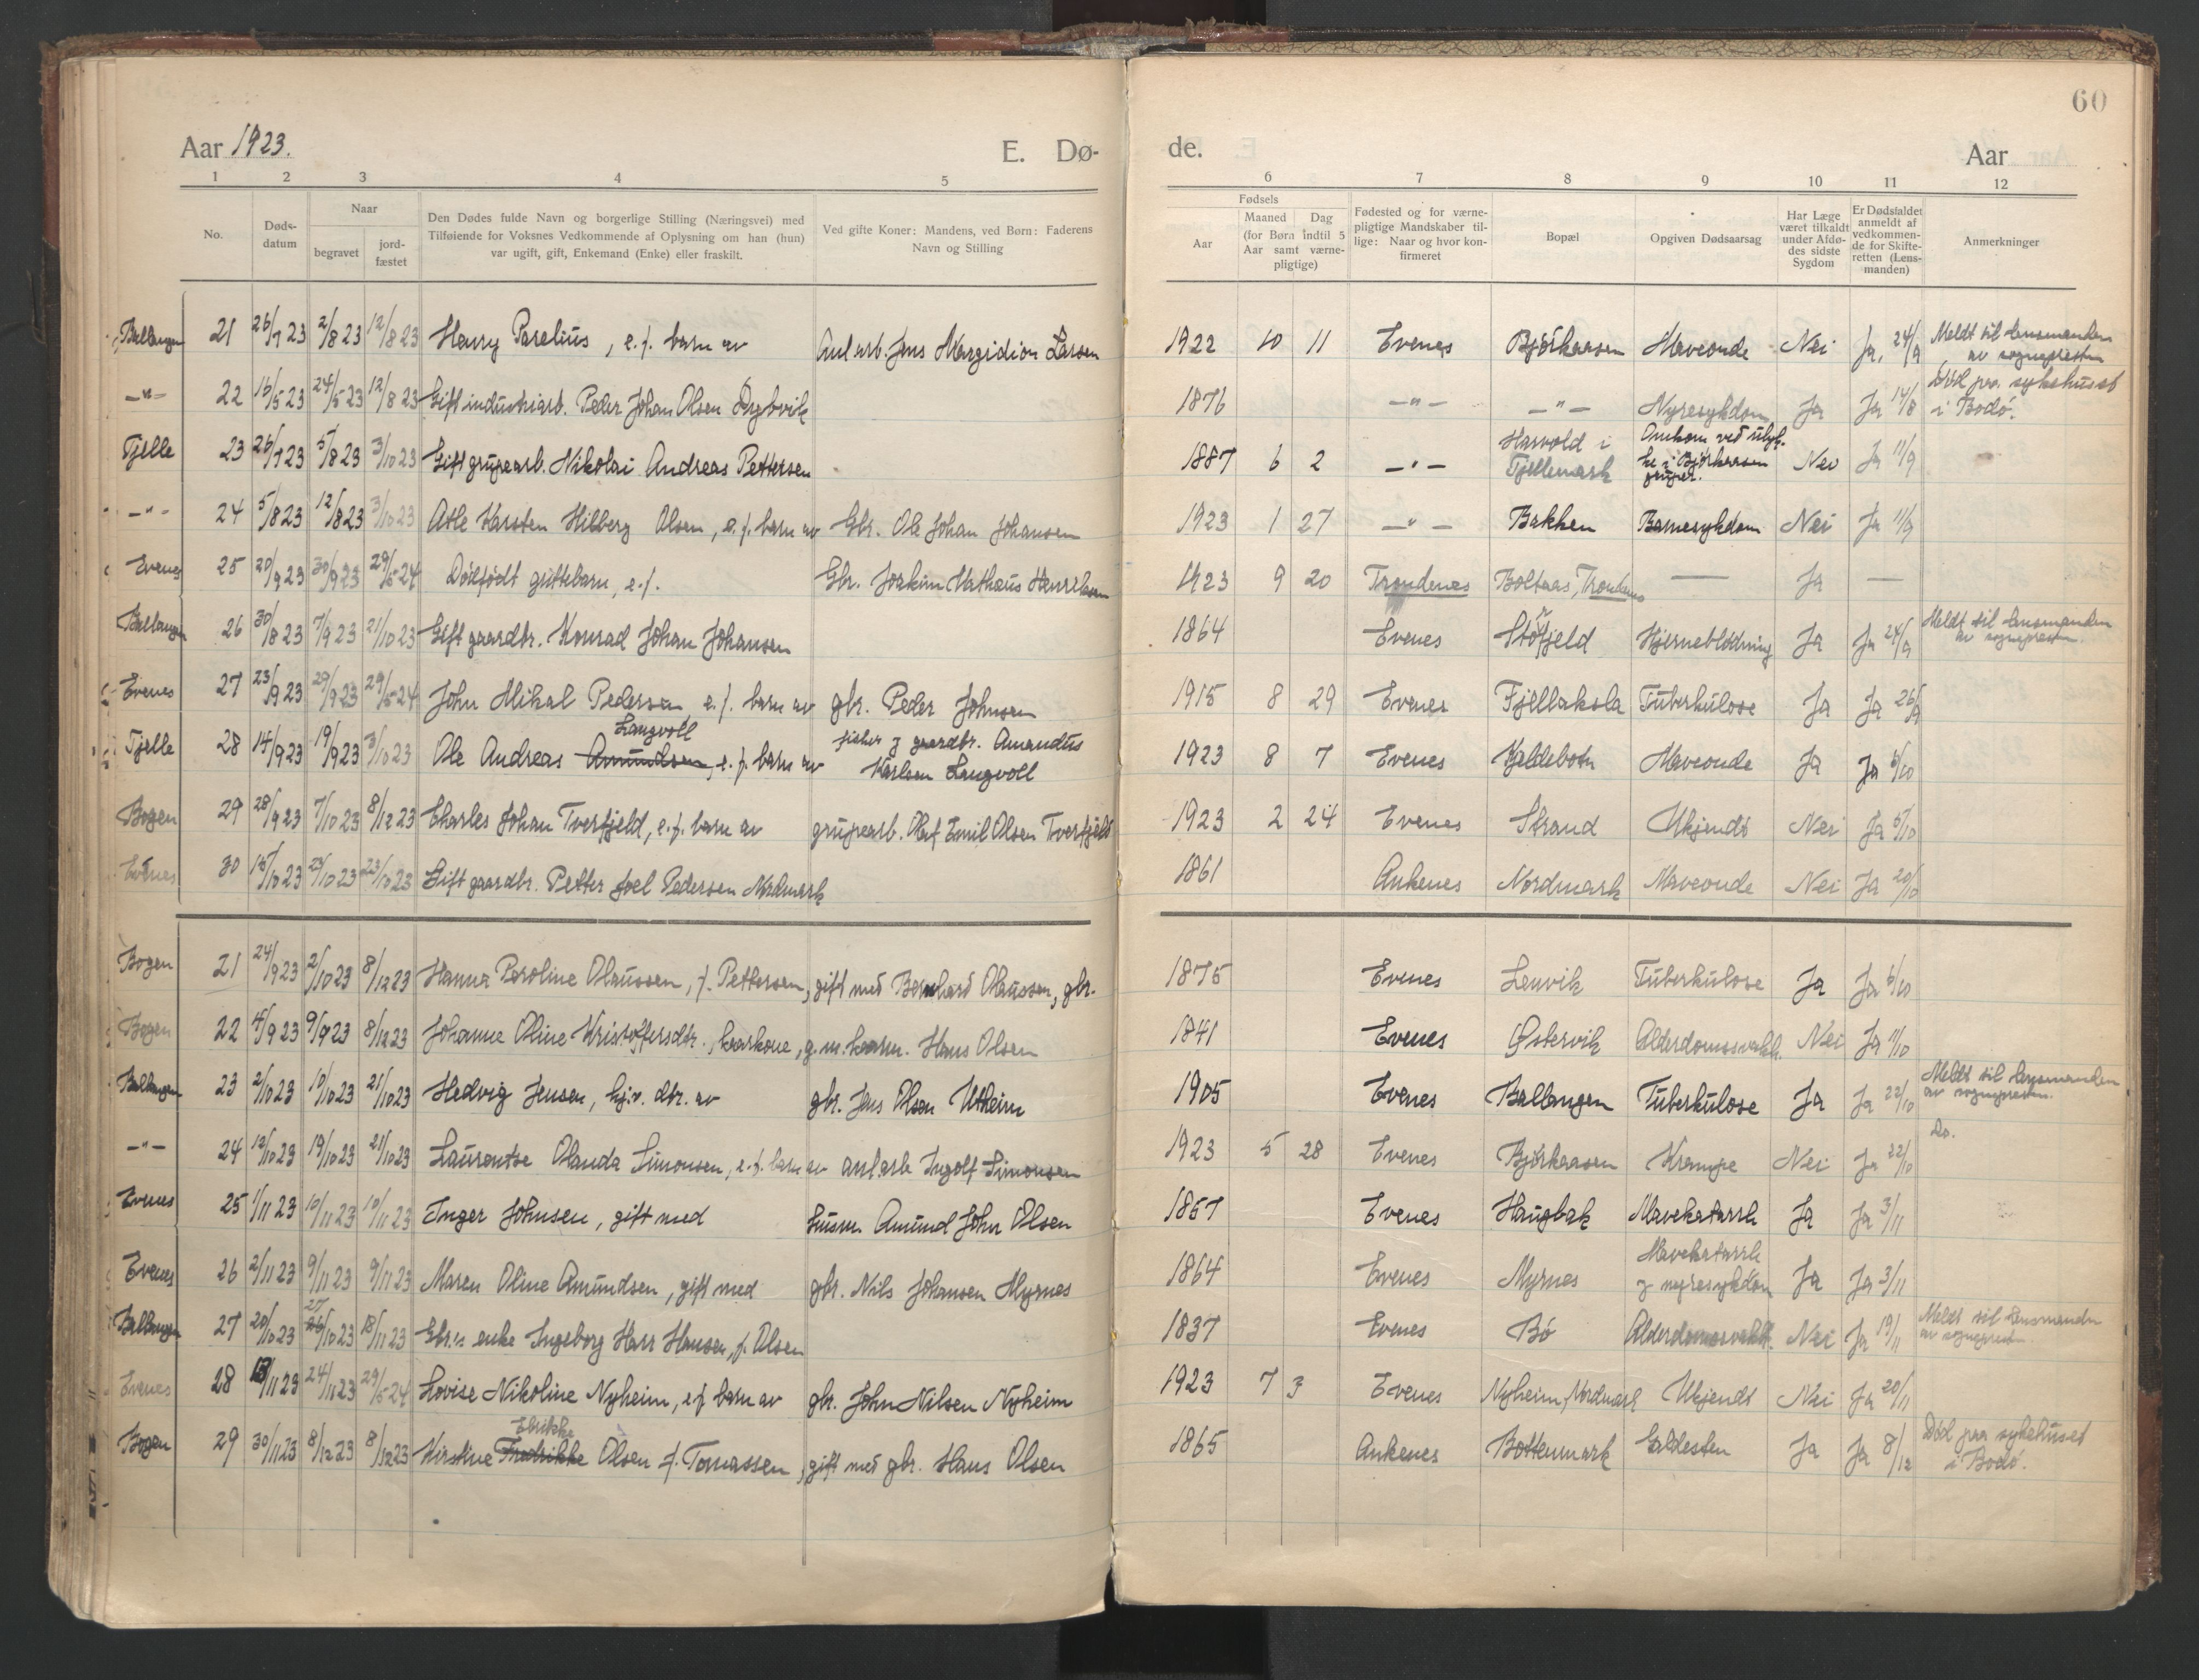 60
Aar 1923. E. Dø- de. Aar
1 2 3 4 5 6 7 8 9 10 11 12
No. Døds-datum Naar begravet jord-fæstet Den Dødes fulde Navn og borgerlige Stilling (Næringsvei) med Tilføiende for Voksnes Vedkommende af Oplysning om han (hun) var ugift, gift, Enkemand (Enke) eller fraskilt. Ved gifte Koner: Mandens, ved Børn: Faderens Navn og Stilling Fødsels Aar Maaned Dag (for Børn indtil 5 Aar samt værne-pligtige) Fødested og for værne-pligtige Mandskaber til-lige: Naar og hvor kon-firmeret Bopæl Opgiven Dødsaarsag Har Læge været tilkaldt under Afdø-des sidste Sygdom Er Dødsfaldet anmeldt af vedkommen-de for Skifte-retten (Lens-manden) Anmerkninger
Ballangen 21 26/7 23 2/8 23 12/8 23 Harry Parelius, e.f. barn av Anl.arb. Jens Margidion Larsen 1922 10 11 Evenes Bjørkaasen Maveonde Nei Ja, 24/9 Meldt til lensmanden av sognepresten
-"- 22 16/5 23 24/5 23 12/8 23 Gift industriarb. Peder Johan Olsen Dybvik 1876 -"- -"- Nyresykdom Ja Ja 14/8 Død paa sykehuset i Bodø.
Tjelle 23 26/7 23 5/8 23 3/10 23 Gift grubearb. Nikolai Andreas Pettersen 1887 6 2 -"- Harvold i Tjellemark Omkom ved ulyk-ke i Bjørkaasen gruber. Nei Ja 11/9
-"- 24 5/8 23 12/8 23 3/10 23 Atle Karsten Hilberg Olsen, e.f. barn av Gbr. Ole Johan Johansen 1923 1 27 -"- Bakken Barnesykdom Nei Ja 11/9
Evenes 25 20/9 23 30/9 23 29/5 24 Dødfødt guttebarn, e.f. Gbr. Joakim Mathæus Henriksen 1923 9 20 Trondenes Boltaas, Trondenes — Ja —
Ballangen 26 30/8 23 7/9 23 21/10 23 Gift gaardbr. Konrad Johan Johansen 1864 Evenes Støfjeld Hjerneblødning Ja Ja 24/9 Meldt til lensmanden av sognepresten.
Evenes 27 23/9 23 29/9 23 29/5 24 John Mikal Pedersen e.f. barn av gbr. Peder Johnsen 1915 8 29 Evenes Fjellaksla Tuberkulose Ja Ja 26/9
Tjelle 28 14/9 23 19/9 23 3/10 23 Ole Andreas Amundsen Langvoll, e.f. barn av fisker g gaardbr. Amandus Karlsen Langvoll 1923 8 7 Evenes Kjeldebotn Maveonde Ja Ja 6/10
Bogen 29 28/9 23 7/10 23 8/12 23 Charles Johan Tverfjeld, e.f. barn av grubearb. Olaf Emil Olsen Tverfjeld 1923 2 24 Evenes Strand Ukjendt Nei Ja 6/10
Evenes 30 15/10 23 23/10 23 23/10 23 Gift gaardbr. Petter Joel Pedersen Nordmark 1861 Ankenes Nordmark Maveonde Nei Ja 20/10
Bogen 21 24/9 23 2/10 23 8/12 23 Hanna Paroline Olaussen, f. Pettersen, gift med Bernhard Olaussen, gbr. 1875 Evenes Lenvik Tuberkulose Ja Ja 6/10
Bogen 22 4/9 23 9/9 23 8/12 23 Johanne Oline Kristoffersdtr., kaarkone, g.m. kaarm. Hans Olsen 1841 Evenes Østervik Alderdomssvakh. Nei Ja 11/10
Ballangen 23 2/10 23 10/10 23 21/10 23 Hedvig Jensen, hjv. dtr. av gbr. Jens Olsen Utheim 1905 Evenes Ballangen Tuberkulose Ja Ja 22/10 Meldt til lensmanden av sognepresten.
-"- 24 12/10 23 19/10 23 21/10 23 Laurentse Olauda Simonsen, e.f. barn av anl.arb Ingolf Simonsen 1923 5 28 Evenes Bjørkaasen Krampe Nei Ja 22/10 Do.
Evenes 25 1/11 23 10/11 23 10/11 23 Inger Johnsen, gift med husm. Amund John Olsen 1857 Evenes Haugbak Mavekatarrh Ja Ja 3/11
Evenes 26 2/11 23 9/11 23 9/11 23 Maren Oline Amundsen, gift med gbr. Nils Johansen Myrnes 1864 Evenes Myrnes Mavekatarrh g nyresykdom Ja Ja 3/11
Ballangen 27 20/10 23 27/10 23 18/11 23 Gbr.s enke Ingeborg Harr Hansen, f. Olsen 1837 Evenes Bø Alderdomssvakh. Nei Ja 19/11 Meldt til lensmanden av sognepresten
Evenes 28 13/11 23 24/11 23 29/5 24 Lovise Nikoline Nyheim, e.f barn av gbr. John Nilsen Nyheim 1923 7 3 Evenes Nyheim, Nordmark Ukjendt Nei Ja 20/11
Bogen 29 30/11 23 8/12 23 8/12 23 Kirstine Fredrikke Elrikke Olsen f. Tomassen, gift med gbr. Hans Olsen 1865 Ankenes Bottenmark Galdesten Ja Ja 8/12 Død paa sykehuset i Bodø.